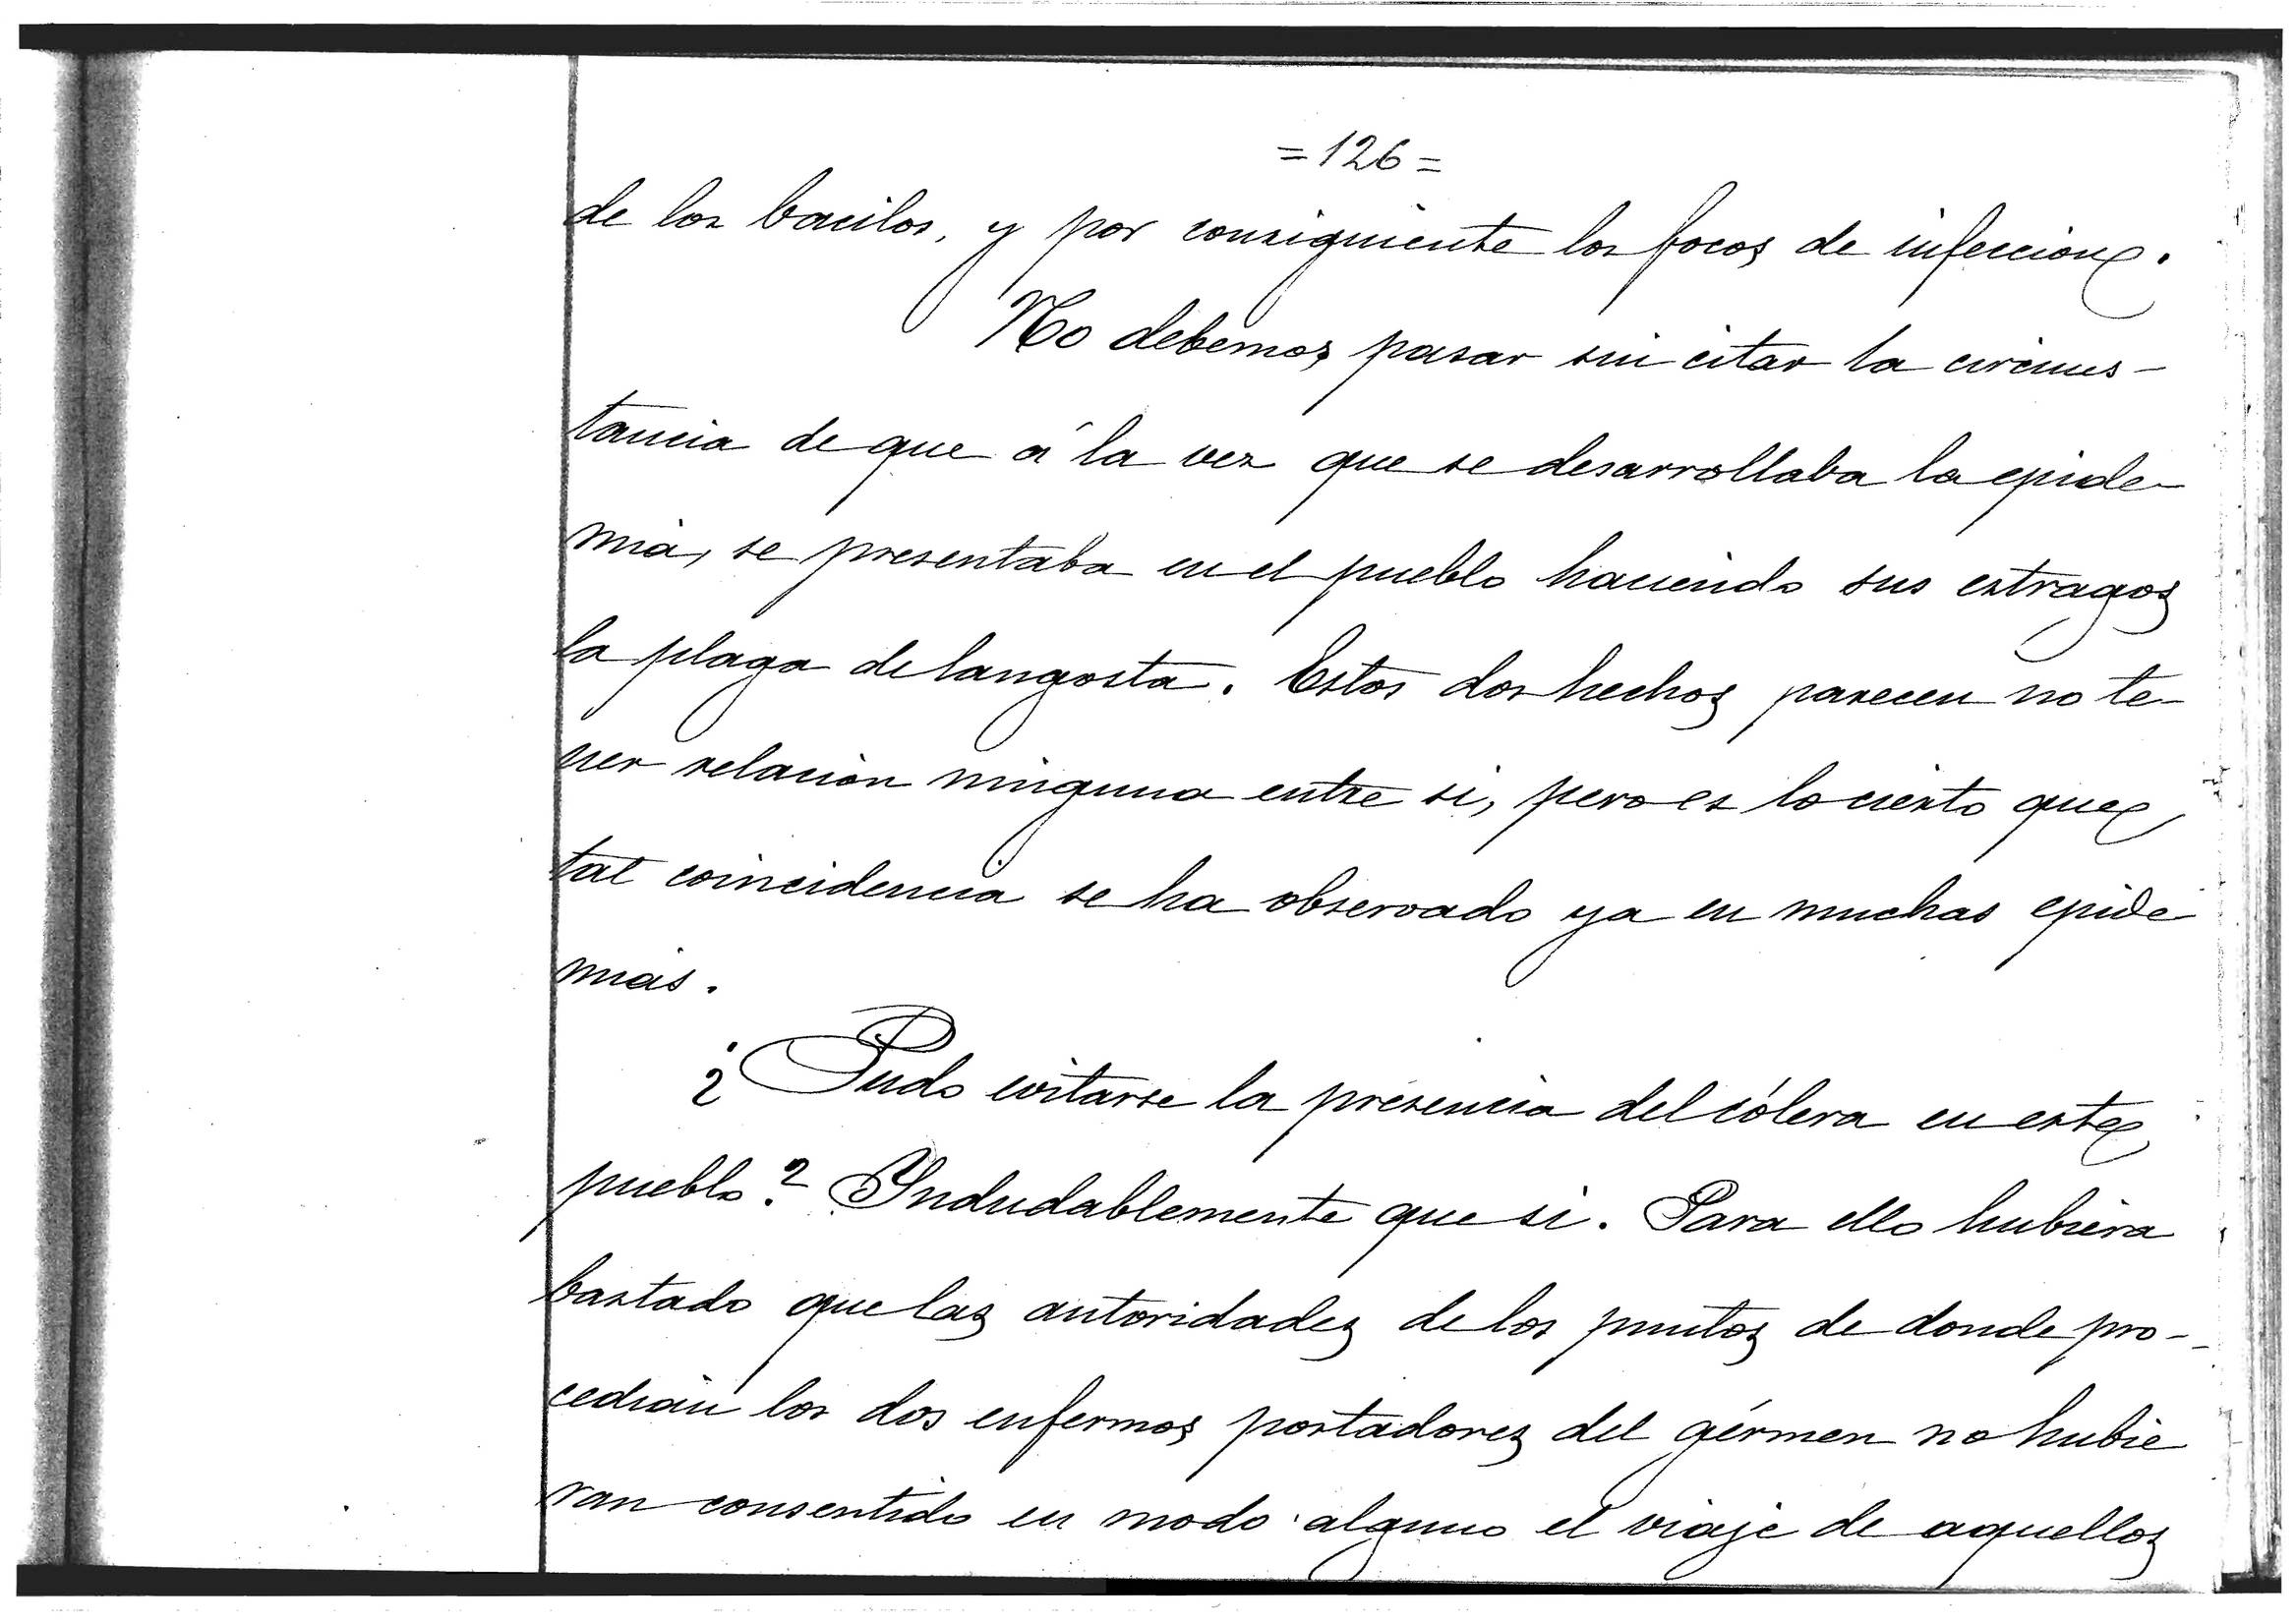 =126=
de los bacilos, y por consiguiente los focos de infeccion.
No debemos pasar sin citar la circuns-
tancia de que á la vez que se desarrollaba la epide-
mia, se presentaba en el pueblo haciendo sus estragos
la plaga de langosta. Estos dos hechos parecen no te-
ner relación ninguna entre si, pero es lo cierto que
tal coincidencia se ha observado ya en muchas epide
mias.
¿Pudo evitarse la presencia del cólera en este
pueblo? Indudablemente que si. Para ello hubiera
bastado que las autoridades de los puntos de donde pro-
cedian los dos enfermos portadores del gérmen no hubie
ran consentido en modo alguno el viaje de aquellos